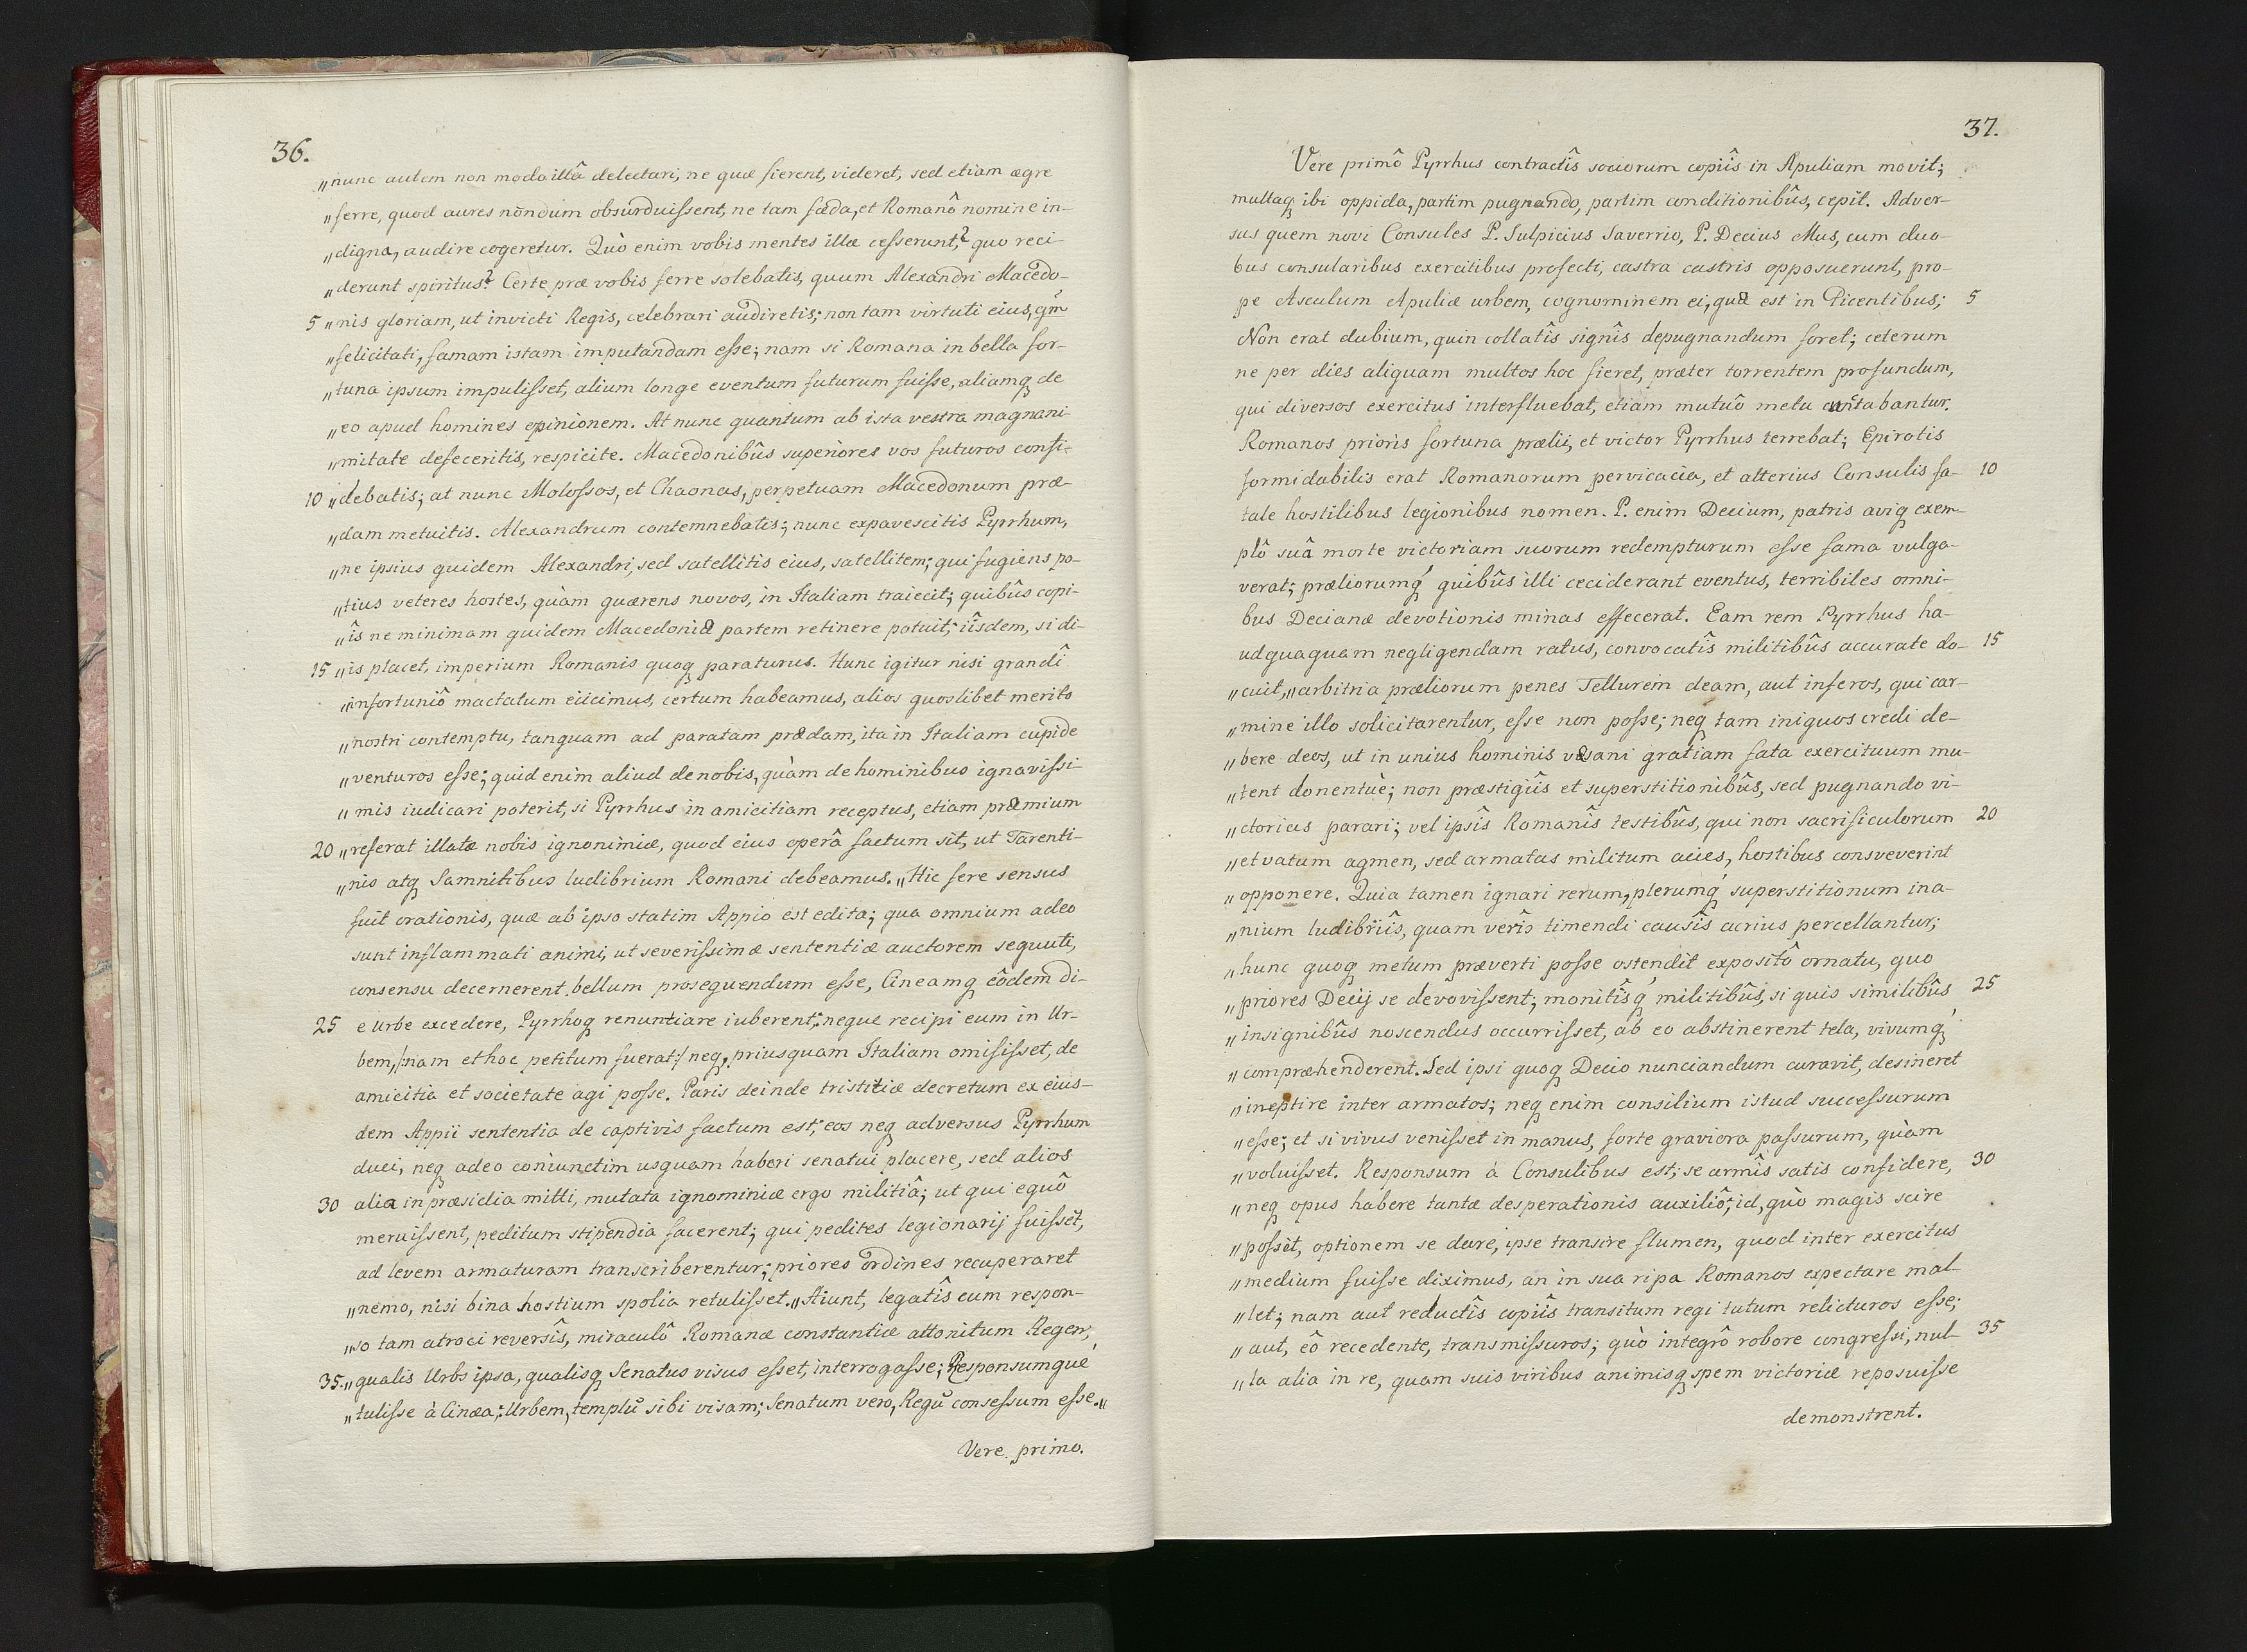 36.
„nunc autem non modo illâ delectari, ne quæ fierent, videret, sed etiam ægre
„ferre, quod aures nondum obsurduissent, ne tam fœda, et Romanô nomine in-
„digna, audire cogeretur. Quò enim vobis mentes illæ cesserunt,? quo reci-
„derunt spiritus? Certe præ vobis ferre solebatis, quum Alexandri Macedo-
5 „nis gloriam, ut invicti Regis, celebrari audiretis; non tam virtuti eius, qm̄
„felicitati, famam istam imputandam esse; nam si Romana in bella for-
„tuna ipsum impulisset, alium longe eventum futurum fuisse, aliamq de
„eo apud homines opinionem. At nunc quantum ab ista vestra magnani-
„mitate defeceritis, respicite. Macedonibûs superiores vos futuros confi-
10 „debatis; at nunc Molossos, et Chaonas, perpetuam Macedonum præ-
„dam metuitis. Alexandrum contemnebatis; nunc expavescitis Pyrrhum,
„ne ipsius quidem Alexandri, sed satellitis eius, satellitem; qui fugiens po-
„tius veteres hostes, quàm quærens novos, in Italiam traiecit; quibûs copi-
„îs ne minimam quidem Macedoniæ partem retinere potuit; iîsdem, si di-
15 „is placet, imperium Romanis quoq paraturus. Hunc igitur nisi grandî
„infortuniô mactatum eiicimus, certum habeamus, alios quoslibet merito
„nostri contemptu, tanquam ad paratam prædam, ita in Italiam cupide
„venturos esse; quid enim aliud de nobis, quàm de hominibus ignavissi-
„mis iudicari poterit, si Pyrrhus in amicitiam receptus, etiam præmium
20 „referat illatæ nobis ignonimiæ, quod eius operâ factum sit, ut Tarenti-
„nis atq Samnitibus ludibrium Romani debeamus.„ Hic fere sensus
fuit orationis, quæ ab ipso statim Appio est edita; qua omnium adeo
sunt inflammati animi, ut severissimæ sententiæ auctorem sequuti,
consensu decernerent bellum prosequendum esse, Cineamq eôdem di-
25 e urbe excedere, Pyrrhoq renuntiare iuberent; neque recipi eum in Ur-
bem, /:nam et hoc petitum fuerat:/ neq, priusquam Italiam omisisset, de
amicitia et societate agi posse. Paris deinde tristitiæ decretum ex eius-
dem Appii sententia de captivis factum est; eos neq adversus Pyrrhum
duci, neq adeo coniunctim usquam haberi senatui placere, sed alios
30 alia in præsidia mitti, mutata ignominiæ ergo militiâ; ut qui equô
meruissent, peditum stipendia facerent; qui pedites legionarij fuissēt,
ad levem armaturam transcriberentur; priores ordines recuperaret
„nemo, nisi bina hostium spolia retulisset.„ Aiunt, legatîs cum respon-
„so tam atroci reversîs, miraculô Romanæ constantiæ attonitum Regem,
35. „qualis Urbs ipsa, qualisq Senatus visus esset, interrogasse; Responsumque
„tulisse à Cinæa; Urbem, templū sibi visam; Senatum vero, Regū consessum esse.„
Vere primo.
37.
Vere primô Pyrrhus contractîs sociorum copiîs in Apuliam movit;
multaq ibi oppida, partim pugnando, partim conditionibûs, cepit. Adver-
sus quem novi Consules P. Sulpicius Saverrio, P. Decius Mus, cum duo-
bus consularibus exercitibus profecti, castra castris opposuerunt, pro-
pe Asculum Apuliæ urbem, cognominem ei, quæ est in Picentibus; 5
Non erat dubium, quin collatîs signîs depugnandum foret; ceterum
ne per dies aliquam multos hoc fieret, præter torrentem profundum,
qui diversos exercitus interfluebat, etiam mutuô metu cunctabantur.
Romanos prioris fortuna prælii, et victor Pyrrhus terrebat; Epirotis
formidabilis erat Romanorum pervicacia, et alterius Consulis fa- 10
tale hostilibus legionibus nomen. P. enim Decium, patris aviq exem-
plô suâ morte victoriam suorum redempturum esse fama vulga-
verat; præliorumq quibûs illi ceciderant eventus, terribiles omni-
bus Decianæ devotionis minas effecerat. Eam rem Pyrrhus ha-
udquaquam negligendam ratus, convocatîs militibûs accurate do- 15
„cuit, „arbitria præliorum penes Tellurem deam, aut inferos, qui car-
„mine illo solicitarentur, esse non posse; neq tam iniquos credi de-
„bere deos, ut in unius hominis væsani gratiam fata exercituum mu-
„tent donentûe; non præstigiîs et superstitionibûs, sed pugnando vi-
„ctorias parari; vel ipsîs Romanîs testibûs, qui non sacrificulorum 20
„et vatum agmen, sed armatas militum acies, hostibus consveverint
„opponere. Quia tamen ignari rerum, plerumq superstitionum ina-
„nium ludibriîs, quam verîs timendi causîs acrius percellantur;
„hunc quoq metum præverti posse ostendit expositô ornatu, quo
„priores Decij se devovissent; monitîsq militibûs, si quis similibûs 25
„insignibûs noscendus occurrisset, ab eo abstinerent tela, vivumq
„compræhenderent. Sed ipsi quoq Decio nunciandum curavit, desineret
„ineptire inter armatos; neq enim consilium istud successurum
„esse; et si vivus venisset in manus, forte graviora passurum, quàm
„voluisset. Responsum à Consulibus est; se armîs satis confidere, 30
„neq opus habere tantæ desperationis auxiliô; id, quò magis scire
„possēt, optionem se dare, ipse transire flumen, quod inter exercitus
„medium fuisse diximus, an in sua ripa Romanos expectare mal-
„let; nam aut reductîs copiîs transitum regi tutum relicturos esse;
„aut, eô recedente, transmissuros; quò integrô robore congressi, nul- 35
„la alia in re, quam suis viribus animisq spem victoriæ reposuisse
demonstrent.